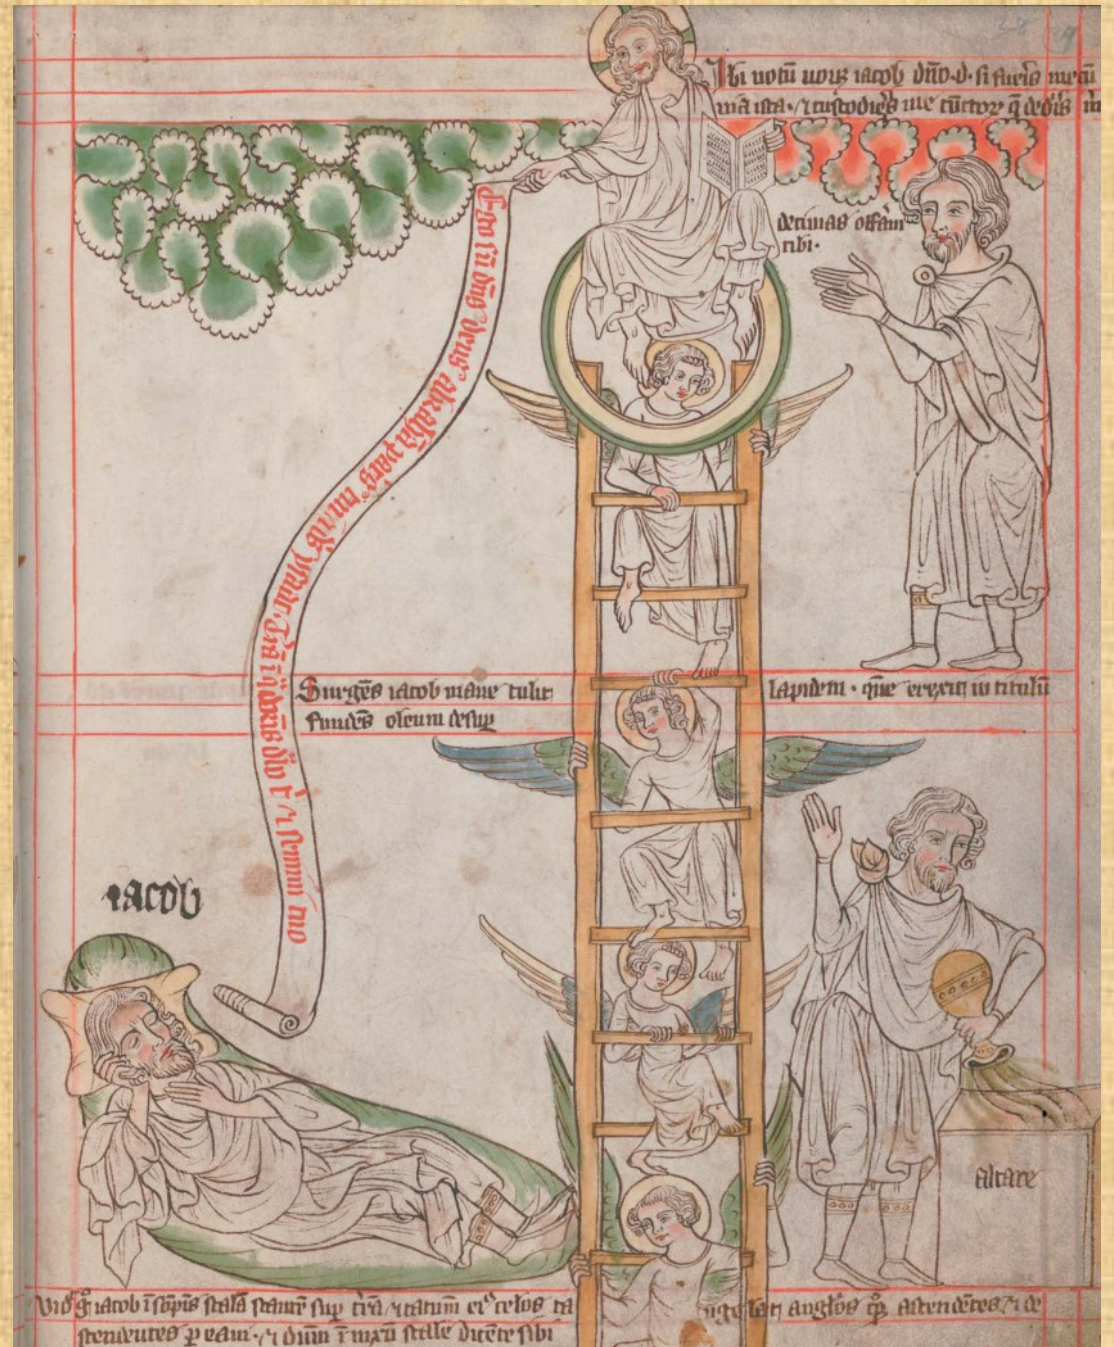 Ibi uotū uouz iacob dño .d. si fueris mecū
uia ista. ⁊ custodieris me cūctorū q̄ dederis m̄
decimas offerā
tibi.
Ego sū dñs deus abrahā patris tui ⁊ ds ysaac. Trā ī q̄ dormis dabo t̄ ⁊ semini tuo
Surgēs iacob mane tulit lapidem . quē erexit in titulū
fundēs oleum desup
iacob
altare
Vidit iacob ī sōpnis scalā stantē sup t̄rā ⁊ cacumē ei᷒ celos ta ngētē angl̄os q̄ꝫ ascendētes ⁊ de
scendentes p eam. ⁊ dñm īnixū scale dicētē sibi